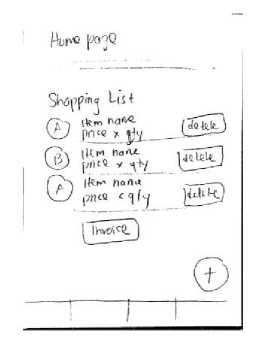 Home page
Shopping List
A
Item name
price x qty
delete
B
Item name
price x qty
delete
A
Item name
price x qty
delete
Invoice
+